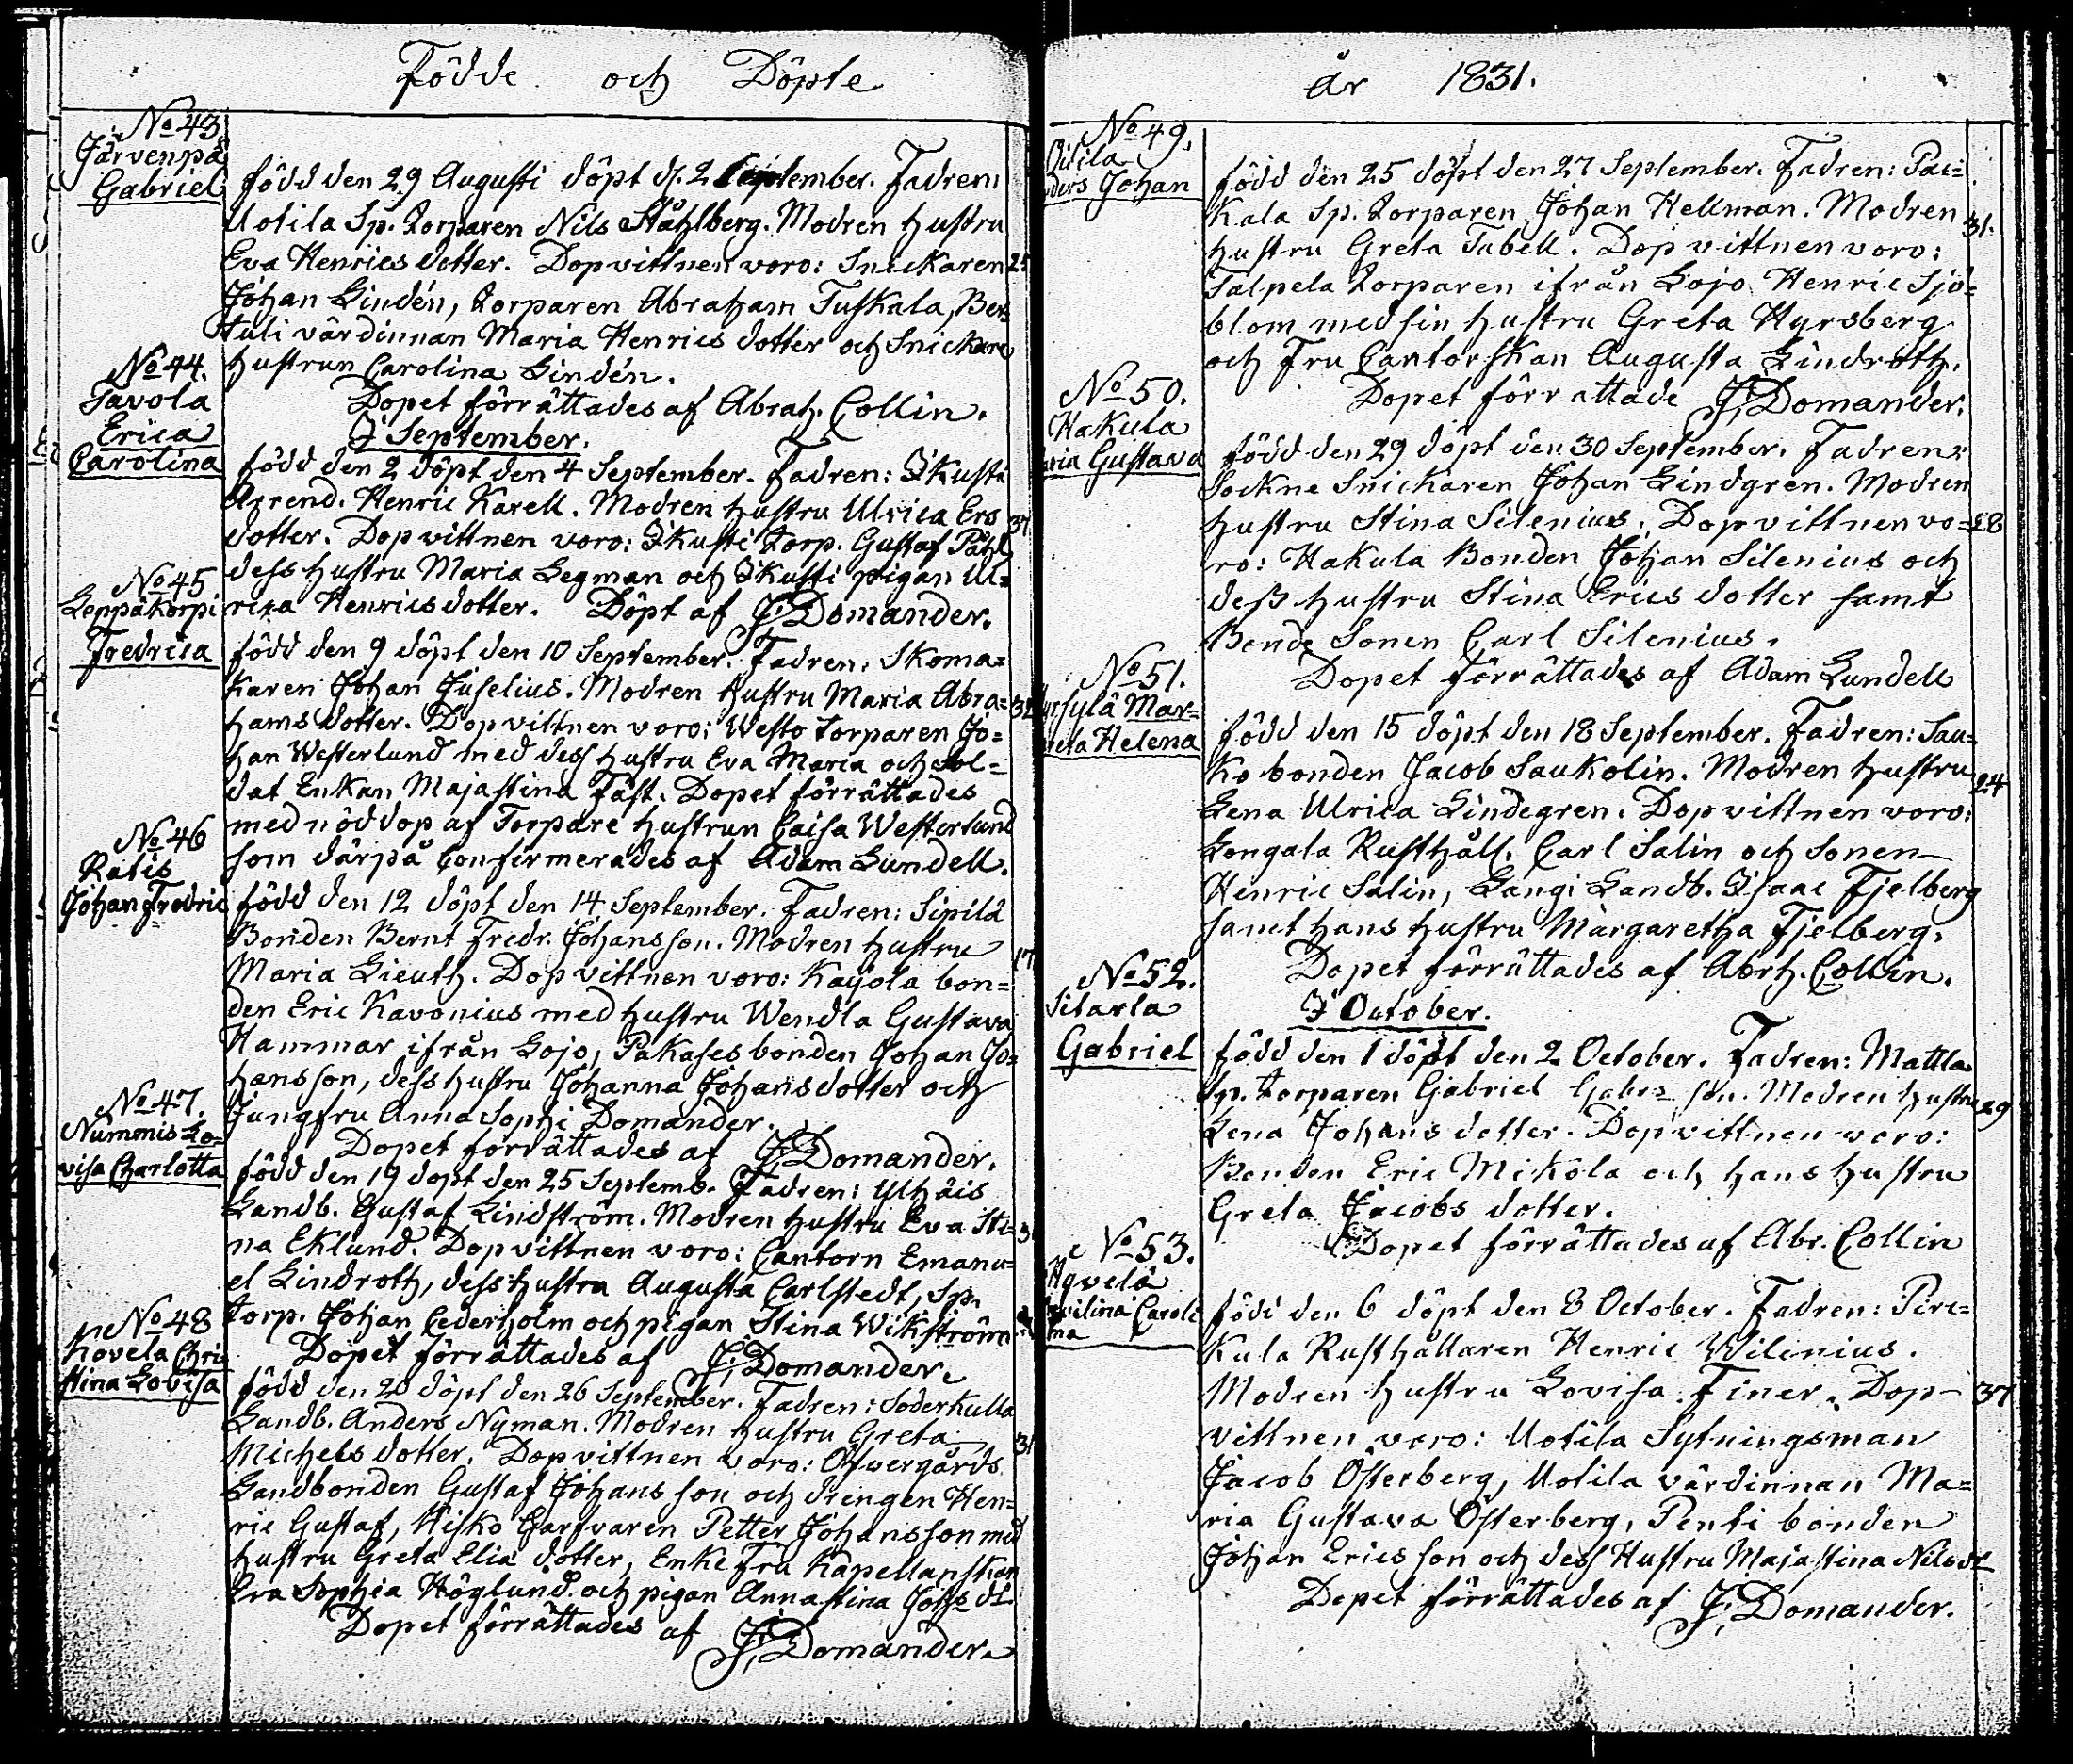 Födde och Döpte
No 43
Järvenpä
Gabriel
född den 29 Augusti döpt d. 2 September. Fadren:
Uotila Sp. Torparen Nils Ståhlberg. Modren hustru
Eva Henrics dotter. Dopvittnen voro: Snickaren
Johan Lindén, Torparen Abraham Tuskala, Ber-
tuli värdinnan Maria Henrics dotter och Snickare
hustrun Carolina Lindén.
Dopet förrättades af Abrah. Collin.
No 44.
Tavola
Erica
Carolina
I September.
född den 2 döpt den 4 September. Fadren: Ikusti
Arrend. Henric Karell. Modren hustru Ulrica Ers
dotter. Dopvittnen voro: Ikusti Torp. Gustaf Påhl 37
dess hustru Maria Legman och Ikusti pigan Ul=
rica Henricsdotter. Döpt af J. Domander.
No 45
Leppäkorpi
Fredrica
född den 9 döpt den 10 September. Fadren: Skoma=
karen Johan Juselius. Modren hustru Maria Abra=
hams dotter. Dopvittnen voro: Westo torparen Jo=
han Westerlund med dess hustru Eva Maria och Sol=
dat Enkan Majastina Fäst. Dopet förrättades
med nöddop af Torpare hustrun Caisa Westerlund
som därpå Confirmerades af Adam Lundell.
No 46
Ratis
Johan Fredric
född den 12 döpt den 14 September. Fadren: Sipilä
Bonden Bernt Fredr. Johansson. Modren hustru
Maria Lieuth. Dopvittnen voro: Kayola bon= 17
den Eric Kavonius med hustru Wendla Gustava
Hammar ifrån Lojo, Pakases bonden Johan Jo=
hansson, dess hustru Johanna Johansdotter och
Jungfru Anna Sophi Domander.
Dopet förrättades af J. Domander.
No 47.
Nummis Lo=
visa Charlotta
född den 19 döpt den 25 Septemb. Fadren: Ylhäis
Landb. Gustaf Lindström. Modren hustru Eva Sti=
na Eklund. Dopvittnen voro: Cantorn Emanu=
el Lindroth, dess hustru Augusta Carlstedt, Sp.
torp. Johan Cederholm och pigan Stina Wikström
Dopet förrättades af J. Domander.
No 48
Hovela Chris
tina Lovisa
född den 20 döpt den 26 September. Fadren: Söderkulla
Landb. Anders Nyman. Modren hustru Greta
Michels dotter. Dopvittnen voro: Öfvergårds 31
Landbonden Gustaf Johansson och drengen Hen=
ric Gustaf, Hisko Garfvaren Petter Johansson med
hustru Greta Elia dotter, Enke Fru Kapellanskan
Eva Sophia Höglund och pigan Annastina Johs dt.
Dopet förrättades af J. Domander.
år 1831.
No 49.
Johan
född den 25 döpt den 27 September. Fadren: Pai=
kala Sp. Torparen Johan Hellman. Modren 31.
hustru Greta Tabell. Dopvittnen voro:
Talpela torparen ifrån Lojo Henric Sjö=
blom med sin hustru Greta Hyrsberg
och Fru Cantorskan Augusta Lindroth.
Dopet förrattade J. Domander.
No 50.
Hakula
Gustava
född den 29 döpt den 30 September. Fadren:
Sockne Snickaren Johan Lindgren. Modren
hustru Stina Silenius. Dopvittnen vo= 28
ro: Hakula Bonden Johan Silenius och
dess hustru Stina Erics dotter samt
Bonde Sonen Carl Silenius.
Dopet förrättades af Adam Lundell
No 51.
Hyrsylä Mar=
reta Helena
född den 15 döpt den 18 September. Fadren: Sau=
ko bonden Jacob Saukolin. Modren hustru 24
Lena Ulrica Lindegren. Dopvittnen voro:
Gongala Rusthåll. Carl Salin och Sonen
Henric Salin, Langi Landb. Isaac Fjelberg
samt hans hustru Margaretha Fjelberg.
Dopet förrättades af Abrh. Collin.
No 52.
Sitarla
Gabriel
I October.
född den 1 döpt den 2 October. Fadren: Mattla
Sp. Torparen Gabriel Gabrs son. Modren hustru 29
Lena Johans dotter. Dopvittnen voro:
Bonden Eric Mikola och hans hustru
Greta Jacobs dotter.
Dopet förrättades af Abr. Collin
No 53.
Hyvelä
Caroli
na
född den 6 döpt den 8 October. Fadren: Pire=
kula Rusthållaren Henric Wilenius.
Modren hustru Lovisa Finer. Dop- 37
vittnen voro: Uotila Sytningsman
Jacob Österberg, Uotila värdinnan Ma=
ria Gustava Österberg, Penti bonden
Johan Ericsson och dess Hustru Majastina Nilsdt
Dopet förrättades af J. Domander.